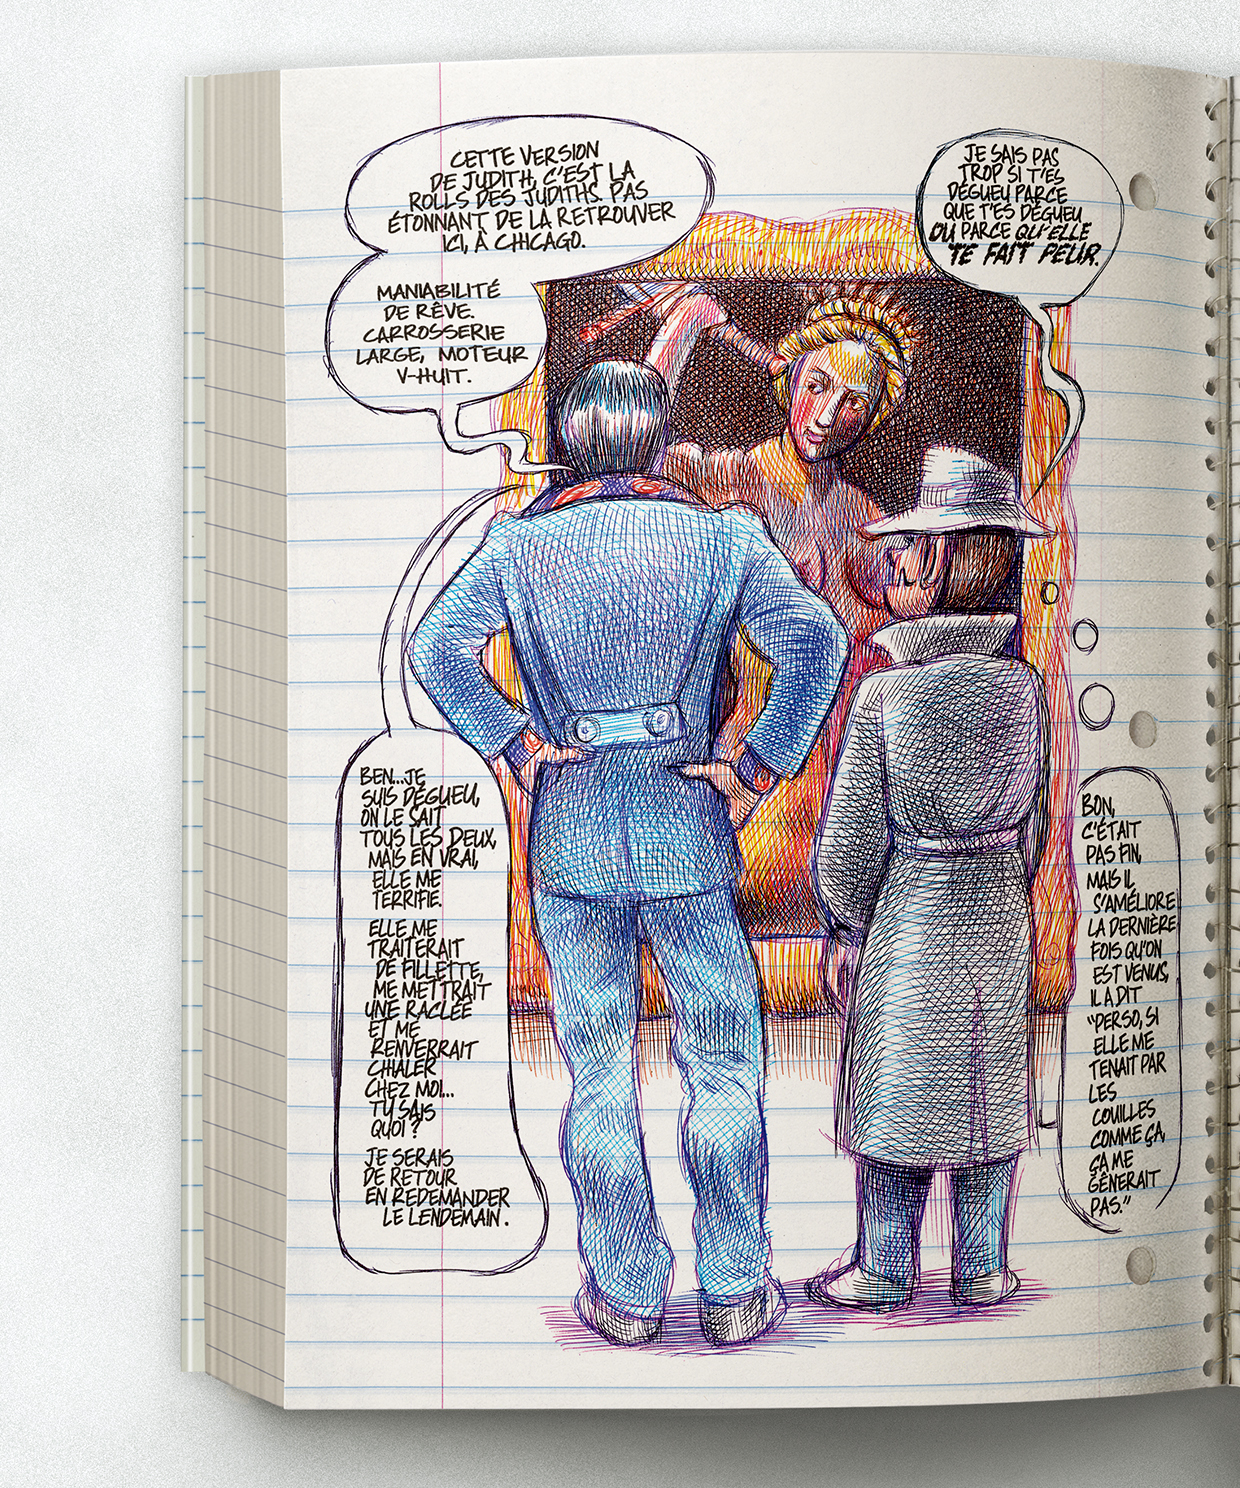 CETTE VERSION
DE JUDITH, C'EST LA
ROLLS DES JUDITHS. PAS
ÉTONNANT DE LA RETROUVER
ICI, À CHICAGO.
MANIABILITÉ
DE RÊVE.
CARROSSERIE
LARGE, MOTEUR
V-HUIT.
JE SAIS PAS
TROP SI T'ES
DÉGUEU PARCE
QUE T'ES DÉGUEU
OU PARCE QU'ELLE
TE FAIT PEUR.
BEN...JE
SUIS DÉGUEU,
ON LE SAIT
TOUS LES DEUX,
MAIS EN VRAI,
ELLE ME
TERRIFIE.
ELLE ME
TRAITERAIT
DE FILLETTE,
ME METTRAIT
UNE RACLÉE
ET ME
RENVERRAIT
CHIALER
CHEZ MOI...
TU SAIS
QUOI ?
JE SERAIS
DE RETOUR
EN REDEMANDER
LE LENDEMAIN.
BON,
C'ÉTAIT
PAS FIN,
MAIS IL
S'AMÉLIORE
LA DERNIÈRE
FOIS QU'ON
EST VENUS,
IL A DIT
"PERSO, SI
ELLE ME
TENAIT PAR
LES
COUILLES
COMME ÇA,
ÇA ME
GÊNERAIT
PAS."